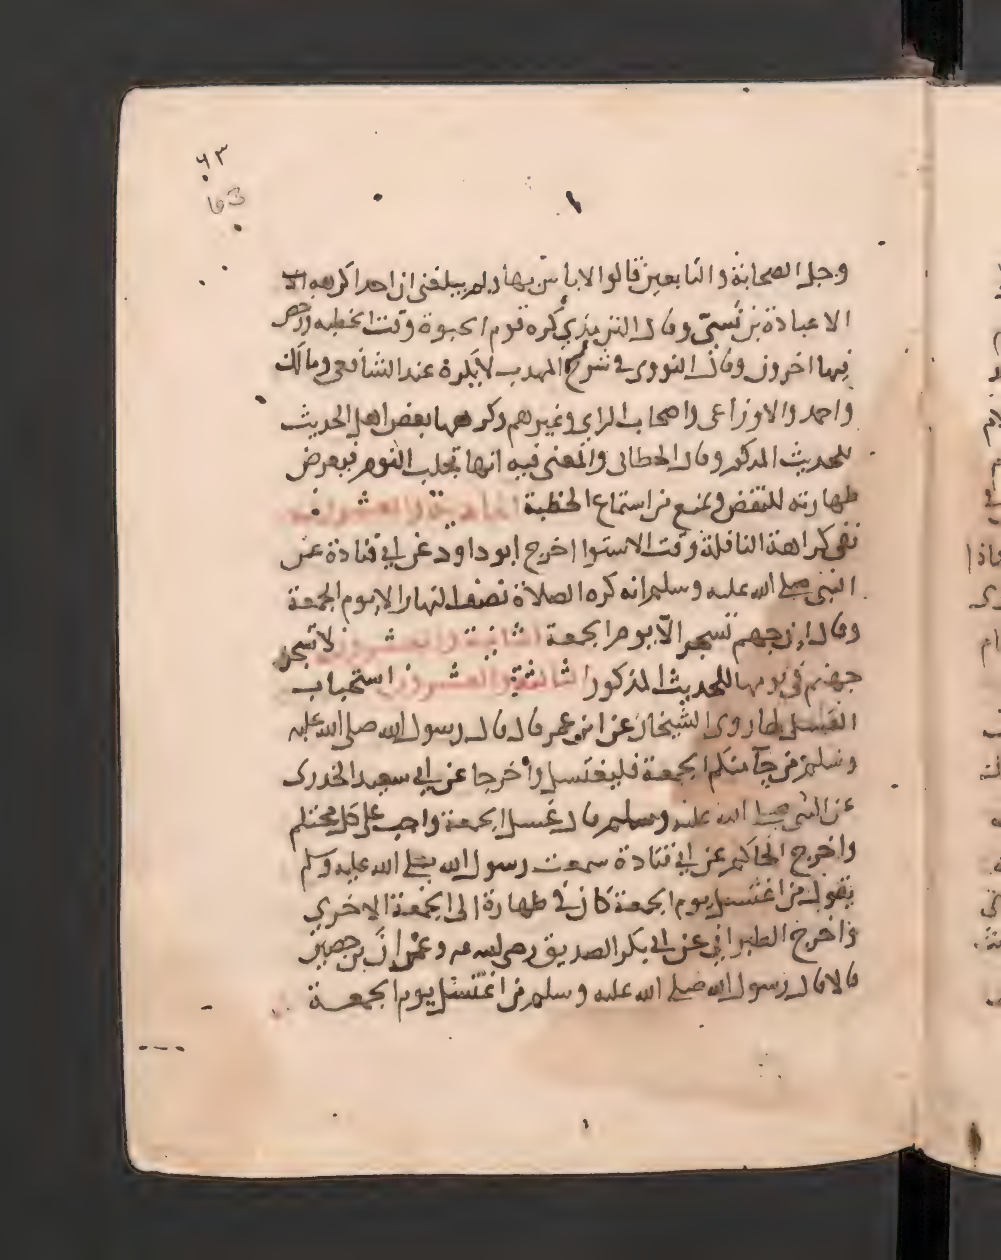 ٦٣
63
وجل الصحابة والتابعين قالوا لا باس بها ولم يبلغنى ان احدا كرهه الا
الا عبادة بن نسي وقال الترمذي كره قوم الحبوة وقت الخطبه ورخص
فيها اخرون وقال النووى في شرح المهذب لا يكره عند الشافعى ومالك
واحمد والاوزاعى واصحاب الراى وغيرهم وكرهها بعض اهل الحديث
للحديث المذكور وقال الخطابى والمعنى فيه انها تجلب النوم فيعرض
طهارته للنقض ويمنع من استماع الخطبة الحادية والعشرون
نفى كراهة النافلة وقت الاستوا اخرج ابو داود عن ابي قتادة عن
النبى صلى الله عليه وسلم انه كره الصلاة نصف النهار الا يوم الجمعة
وقال ان جهنم تسجر الا يوم الجمعة الثانية والعشرون لا تسجر
جهنم في يومها للحديث المذكور الثالثة والعشرون استحباب
الغسل لها روى الشيخان عن ابن عمر قال قال رسول الله صلى الله عليه
وسلم من جآ منكم الجمعة فليغتسل واخرجا عن ابي سعيد الخدرى
عن النبى صلى الله عليه وسلم قال غسل الجمعة واجب على كل محتلم
واخرج الحاكم عن ابي قتادة سمعت رسول الله صلى الله عليه وسلم
يقول من اغتسل يوم الجمعة كان في طهارة الى الجمعة الاخرى
واخرج الطبراني عن ابي بكر الصديق رضى الله عنه وعمران بن حصين
قالا قال رسول الله صلى الله عليه وسلم من اغتسل يوم الجمعة